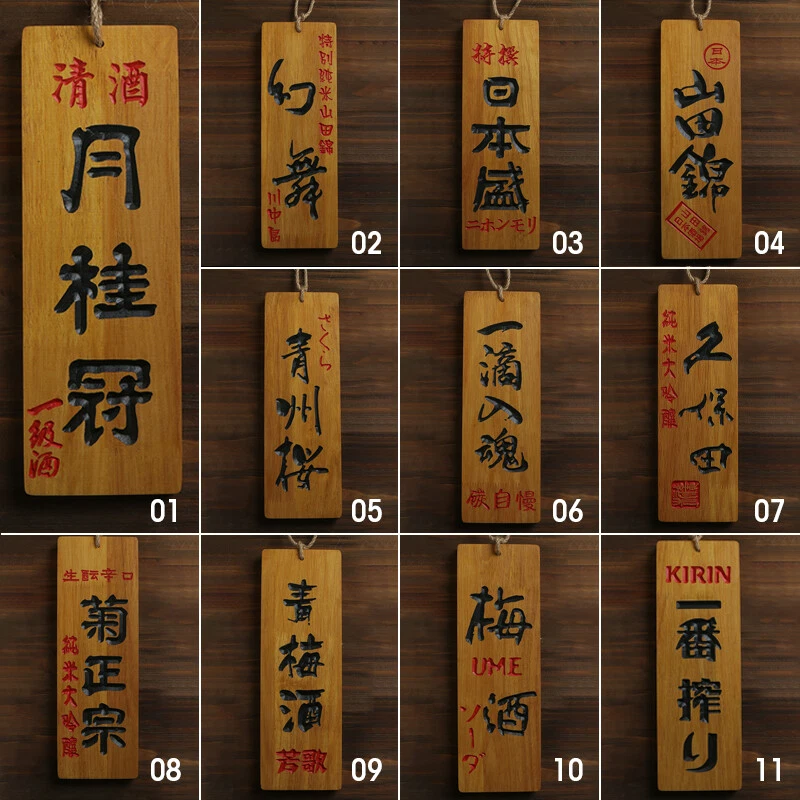 清酒
月桂冠
一级酒
01
特别純米山田錦
幻舞
川中島
02
特撰
日本盛
ニホンモリ
03
日本
山田錦
04
さくら
青州桜
05
一滴入魂
自慢
06
純米大吟醸
久保田
07
生酛辛口
菊正宗
純米大吟醸
08
青梅酒
芳歌
09
梅酒
UME
ソーダ
10
KIRIN
一番搾り
11